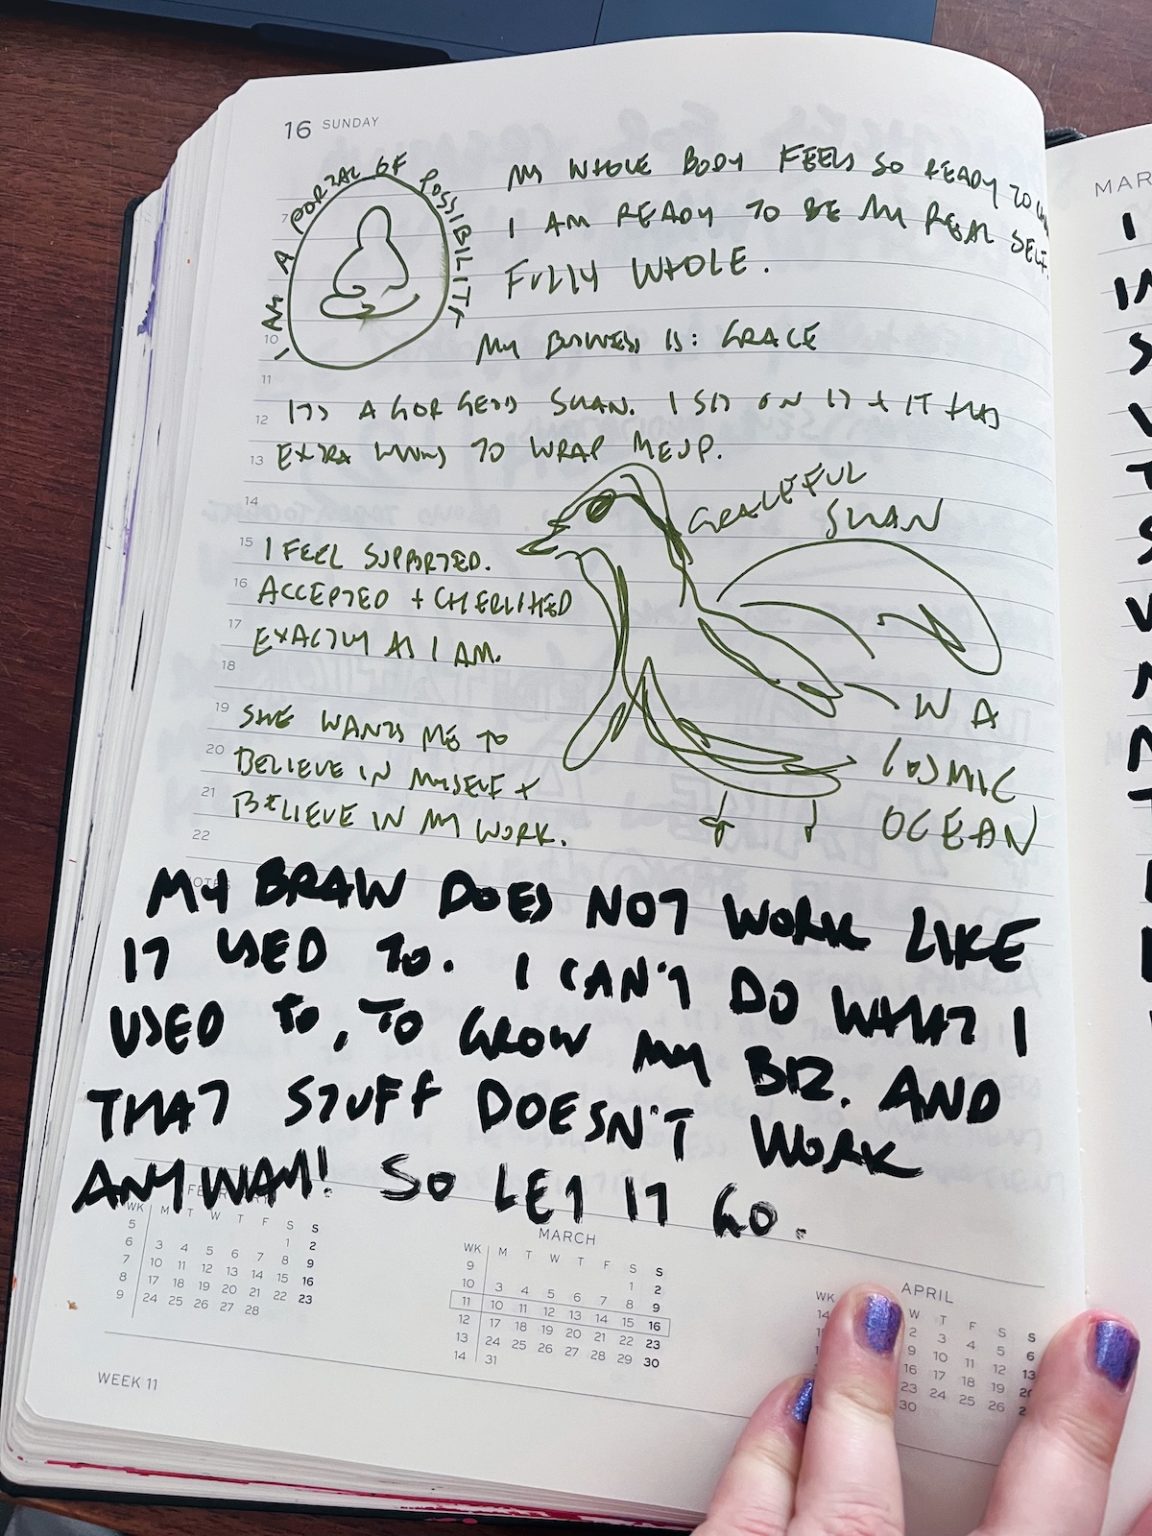 16 SUNDAY
I AM A PORTAL OF POSSIBILITY
MY WHOLE BODY FEELS SO READY TO
I AM READY TO BE MY REAL SELF.
FULLY WHOLE.
MY BUSINESS IS: GRACE
ITS A GORGEOUS SWAN. I SIT ON IT + IT HAS
EXTRA WINGS TO WRAP ME UP.
GRACEFUL
SWAN
I FEEL SUPPORTED.
ACCEPTED + CHERISHED
EXACTLY AS I AM.
IN A
COSMIC
OCEAN
SHE WANTS ME TO
BELIEVE IN MYSELF +
BELIEVE IN MY WORK.
7
10
11
12
13
14
15
16
17
18
19
20
21
22
NOTES
MY BRAIN DOES NOT WORK LIKE
IT USED TO. I CAN'T DO WHAT I
USED TO, TO GROW MY BIZ. AND
THAT STUFF DOESN'T WORK
ANYWAY! SO LET IT GO.
FEBRUARY
WK M T W T F S S
5 1 2
6 3 4 5 6 7 8 9
7 10 11 12 13 14 15 16
8 17 18 19 20 21 22 23
9 24 25 26 27 28
MARCH
WK M T W T F S S
9 1 2
10 3 4 5 6 7 8 9
11 10 11 12 13 14 15 16
12 17 18 19 20 21 22 23
13 24 25 26 27 28 29 30
14 31
APRIL
WK W T F S S
14 2 3 4 5 6
9 10 11 12 13
16 17 18 19
23 24 25 26
30
WEEK 11
MAR
I